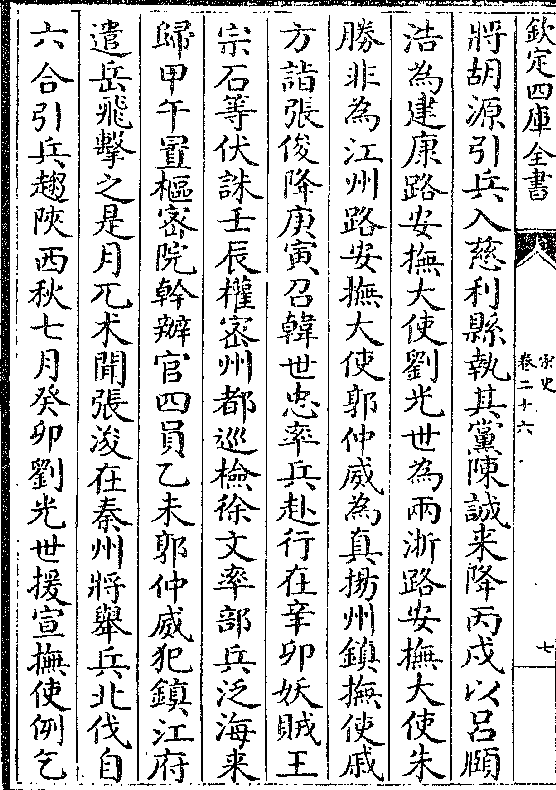 欽定四庫全書
宋史
卷二十六
七
將胡源引兵入慈利縣執其黨陳誠来降丙戍以吕頤
浩為建康路安撫大使劉光世為兩浙路安撫大使朱
勝非為江州路安撫大使郭仲威為真揚州鎮撫使戚
方詣張俊降庚寅召韓世忠率兵赴行在辛卯妖賊王
宗石等伏誅壬辰權密州都巡檢徐文率部兵泛海来
歸甲午置樞密院幹辦官四員乙未郭仲威犯鎮江府
遣岳飛擊之是月兀术聞張浚在秦州將舉兵北伐自
六合引兵趨陜西秋七月癸卯劉光世援宣撫使例乞